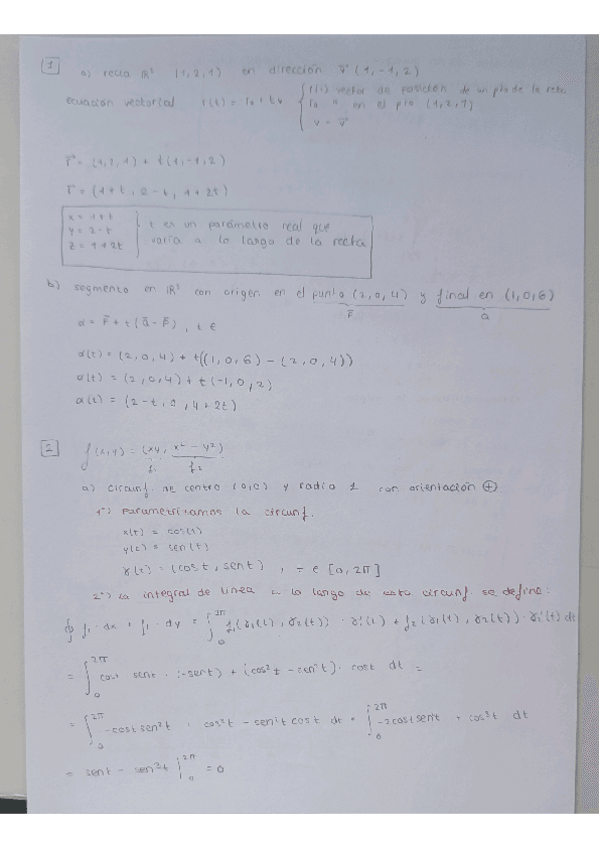 1
a) recta ℝ³ (1,2,1) en dirección v⃗ (1,-1,2)
ecuación vectorial r(t) = r₀ + tv { r(t) vector de posición de un pto de la recta
r₀ " en el pto (1,2,1)
v = v⃗
r⃗ = (1,2,1) + t(1,-1,2)
r⃗ = (1+t, 2-t, 1+2t)
x = 1+t
y = 2-t
z = 1+2t
t es un parámetro real que
varía a lo largo de la recta
b) segmento en ℝ³ con origen en el punto (2,0,4) y final en (1,0,6)
α = p̄ + t(q̄ - p̄), t ∈
α(t) = (2,0,4) + t((1,0,6) - (2,0,4))
α(t) = (2,0,4) + t(-1,0,2)
α(t) = (2-t, 0, 4+2t)
2
f(x,y) = (xy, x² - y²)
f₁ f₂
a) circunf. de centro (0,0) y radio 1 con orientación ⊕
1º) parametrizamos la circunf.
x(t) = cos(t)
y(t) = sen(t)
γ(t) = (cost, sent), t ∈ [0, 2π]
2º) la integral de línea a lo largo de esta circunf se define:
∮ f₁·dx + f₂·dy = ∫₀^2π f₁(γ₁(t), γ₂(t))·γ₁'(t) + f₂(γ₁(t), γ₂(t))·γ₂'(t) dt
= ∫₀^2π cost sent·(-sent) + (cos²t - sen²t)·cost dt =
= ∫₀^2π -cost sen²t + cos³t - sen²t cost dt = ∫₀^2π -2cost sen²t + cos³t dt
= sent - sen³t |₀^2π = 0